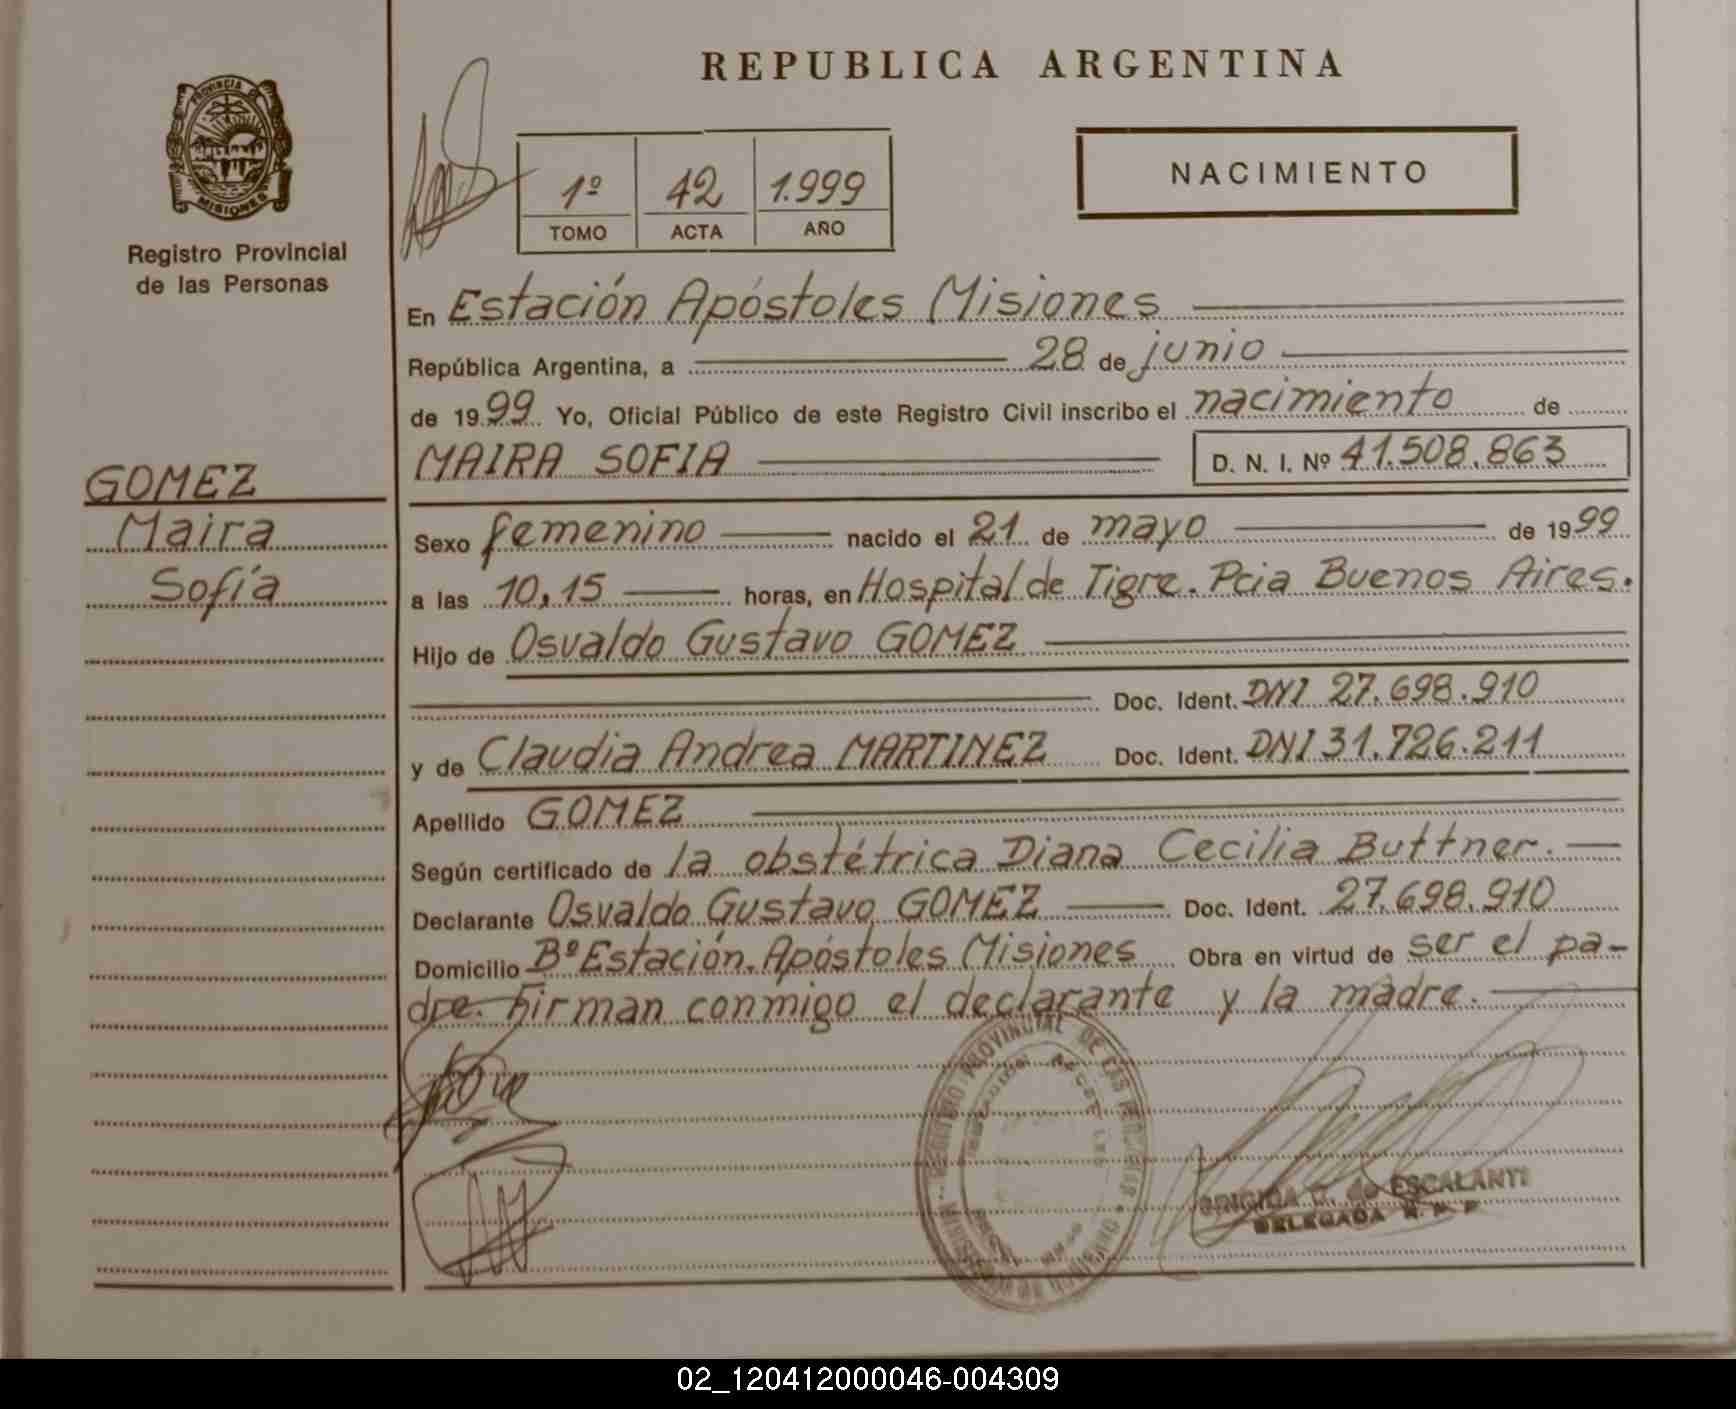 REPUBLICA ARGENTINA
PROVINCIA DE
MISIONES
Registro Provincial
de las Personas
1º 42 1.999
TOMO ACTA AÑO
NACIMIENTO
En Estación Apóstoles Misiones
República Argentina, a 28 de junio
de 1999 Yo, Oficial Público de este Registro Civil inscribo el nacimiento de
MAIRA SOFIA D. N. I. Nº 41.508.863
GOMEZ
Maira
Sofía
Sexo femenino nacido el 21 de mayo de 1999
a las 10,15 horas, en Hospital de Tigre. Pcia Buenos Aires.
Hijo de Osvaldo Gustavo GOMEZ
Doc. Ident. DNI 27.698.910
y de Claudia Andrea MARTINEZ Doc. Ident. DNI 31.726.211
Apellido GOMEZ
Según certificado de la obstétrica Diana Cecilia Buttner.
Declarante Osvaldo Gustavo GOMEZ Doc. Ident. 27.698.910
Domicilio Bº Estación. Apóstoles Misiones Obra en virtud de ser el pa-
dre. Firman conmigo el declarante y la madre.
REGISTRO PROVINCIAL DE LAS PERSONAS
BRIGIDA de ESCALANTE
DELEGADA R. P. P.
02_120412000046-004309